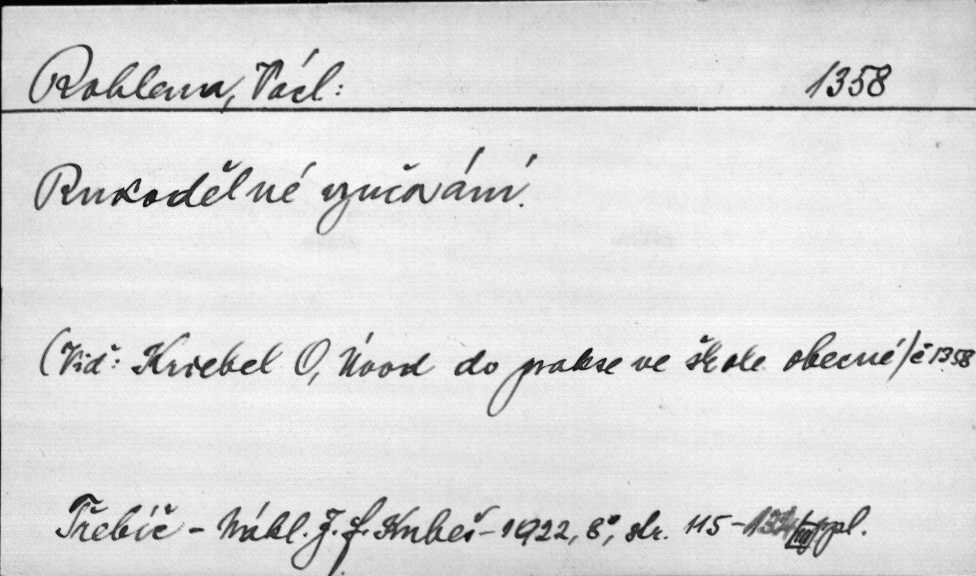 Rohlena, Václ: 1358
Rukodělné vyučování.
(Viď: Kriebel O, Úvod do prakse ve škole obecné) č 1358
Třebíč - Nákl. J. F. Kubeš - 1922, 8°, str. 115 -